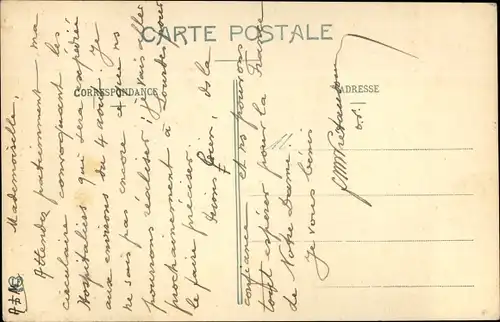 CARTE POSTALE
CORRESPONDANCE
ADRESSE
Mademoiselle,
Attendez patiemment ma
circulaire convoquant les
Hospitaliers qui sera expédiée
aux environs du 4 août. Je
ne sais pas encore ce que ns
pourrons réaliser; je vais aller
prochainement à Lourdes pour
le faire préciser.
de la
confiance et ns pouvons
tout espérer pour la France
de Notre Dame.
Je vous bénis